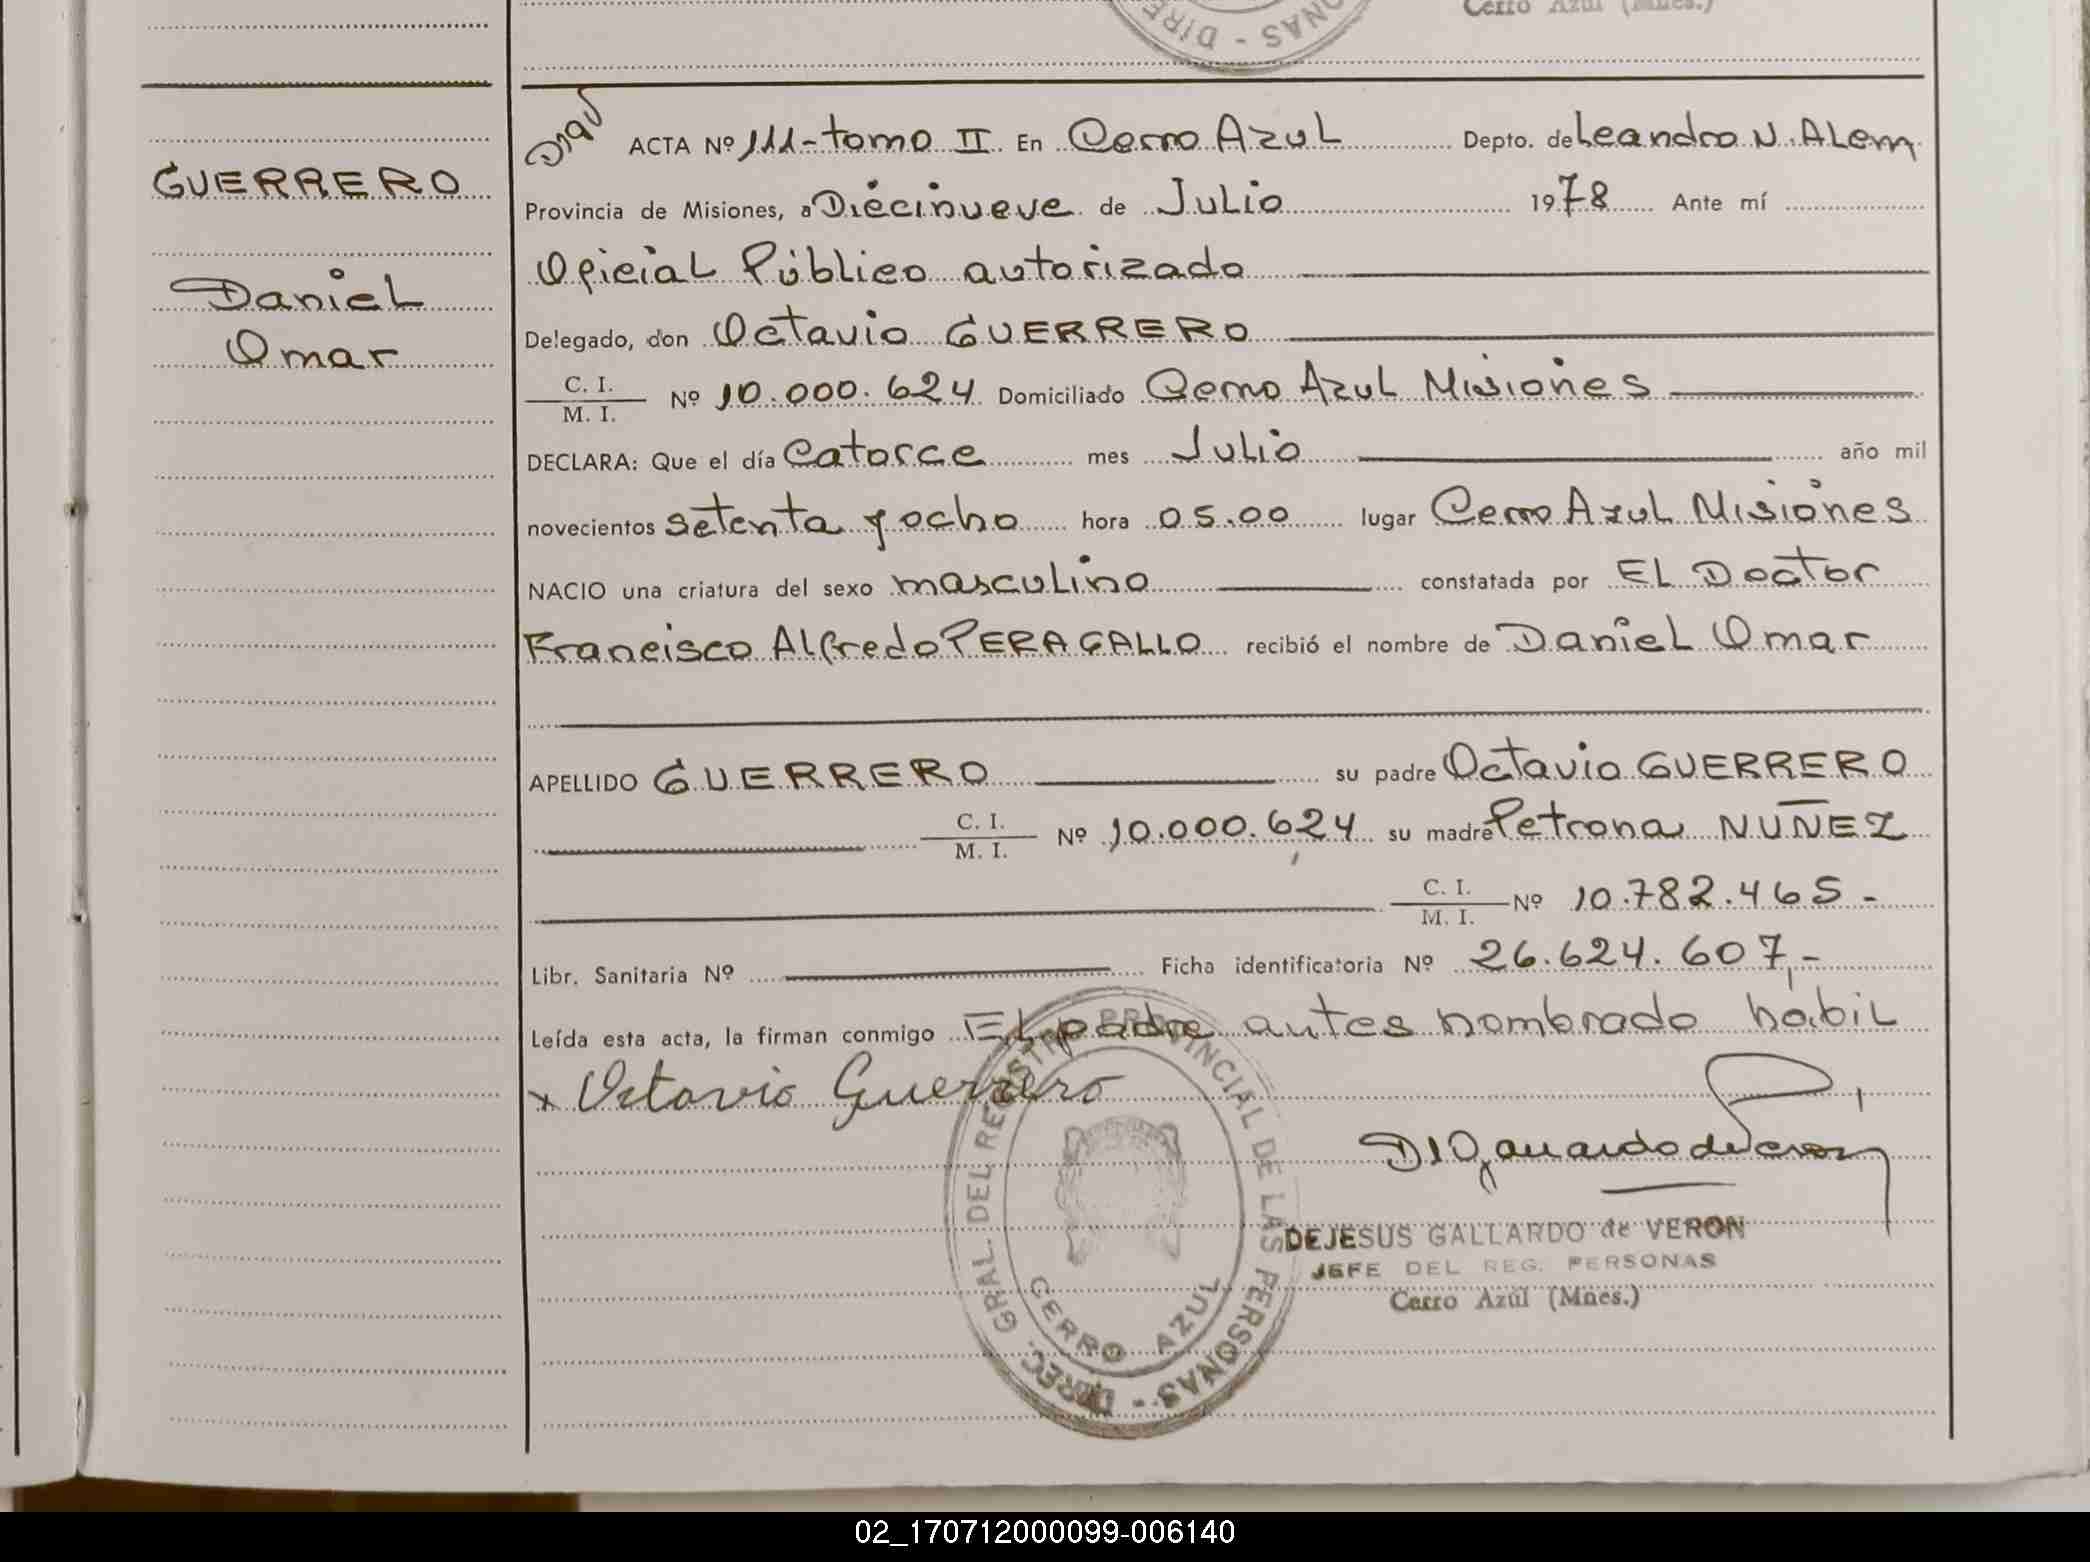 Cerro Azul (Mnes.)
ONAS - DIRE
GUERRERO
Daniel
Omar
ACTA Nº 111-tomo II En Cerro Azul Depto. de Leandro N. Alem
Provincia de Misiones, a Diecinueve de Julio 1978 Ante mí
Oficial Público autorizado
Delegado, don Octavio GUERRERO
C. I. / M. I. Nº 10.000.624 Domiciliado Cerro Azul Misiones
DECLARA: Que el día Catorce mes Julio año mil
novecientos setenta y ocho hora 05.00 lugar Cerro Azul Misiones
NACIO una criatura del sexo masculino constatada por El Doctor
Francisco Alfredo PERAGALLO recibió el nombre de Daniel Omar
APELLIDO GUERRERO su padre Octavio GUERRERO
C. I. / M. I. Nº 10.000.624 su madre Petrona NUÑEZ
C. I. / M. I. Nº 10.782.465-
Libr. Sanitaria Nº Ficha identificatoria Nº 26.624.607,-
Leída esta acta, la firman conmigo El padre antes nombrado hábil
x Octavio Guerrero
DEJESUS GALLARDO de VERON
JEFE DEL REG. PERSONAS
Cerro Azul (Mnes.)
DIREC. GRAL. DEL REGISTRO PROVINCIAL DE LAS PERSONAS -
CERRO AZUL
02_170712000099-006140